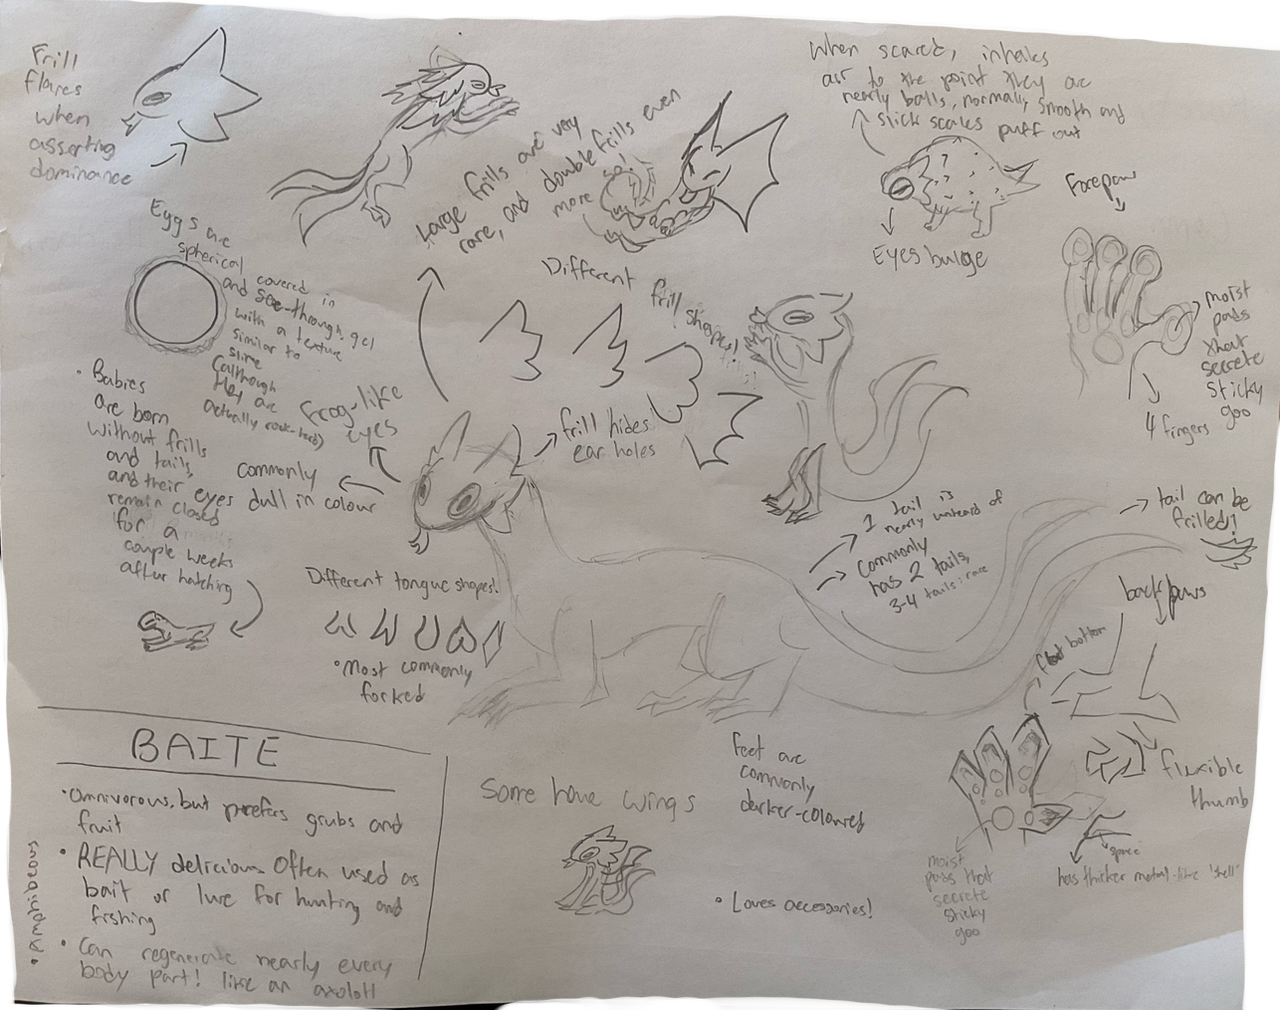 Frill
flares
when
asserting
dominance
Large frills are very
rare, and double frills even
more so!
When scared, inhales
air to the point they are
nearly balls, normally smooth and
slick scales puff out
Eyes bulge
Forepaw
moist
pads
that
secrete
sticky
goo
4 fingers
Eggs are
spherical, covered in
and see-through gel
with a texture
similar to
slime
(although
they are
actually rock-hard)
Different frill shapes!
frill hides
ear holes
frog-like
eyes
commonly
dull in colour
• Babies
are born
without frills
and tails,
and their eyes
remain closed
for a
couple weeks
after hatching
Different tongue shapes!
• Most commonly
forked
1 tail is
nearly unheard of
commonly
has 2 tails,
3-4 tails: rare
tail can be
frilled!
back paws
flat bottom
flexible
thumb
space
has thicker metal-like "shell"
moist
pads that
secrete
sticky
goo
feet are
commonly
darker-coloured
Some have wings
• Loves accessories!
BAITE
• Omnivorous, but prefers grubs and
fruit
• REALLY delicious. Often used as
bait or lure for hunting and
fishing
• Can regenerate nearly every
body part! like an axolotl
• Amphibeous